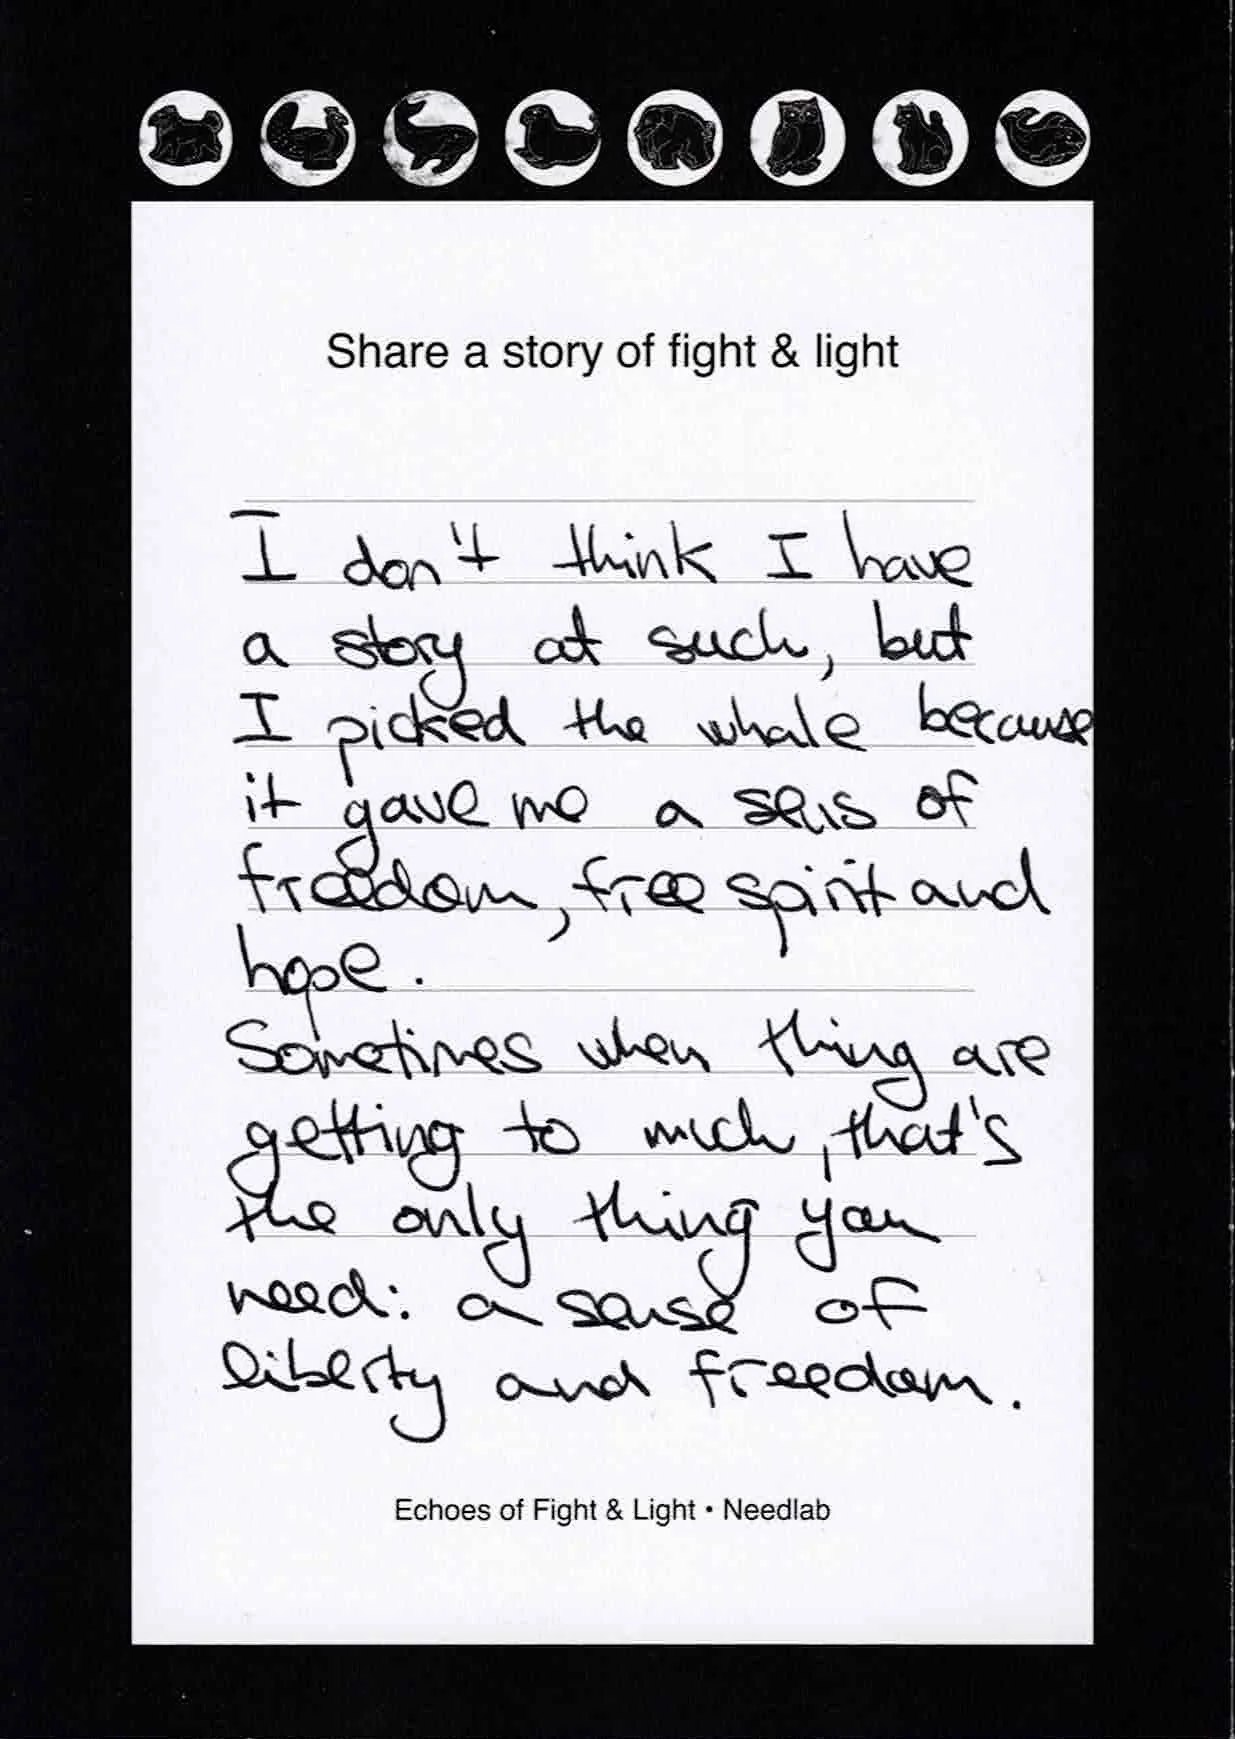 Share a story of fight & light
I don't think I have
a story at such, but
I picked the whale because
it gave me a seus of
freedom, free spirit and
hope.
Sometimes when thing are
getting to much, that's
the only thing you
need: a sense of
liberty and freedom.
Echoes of Fight & Light • Needlab